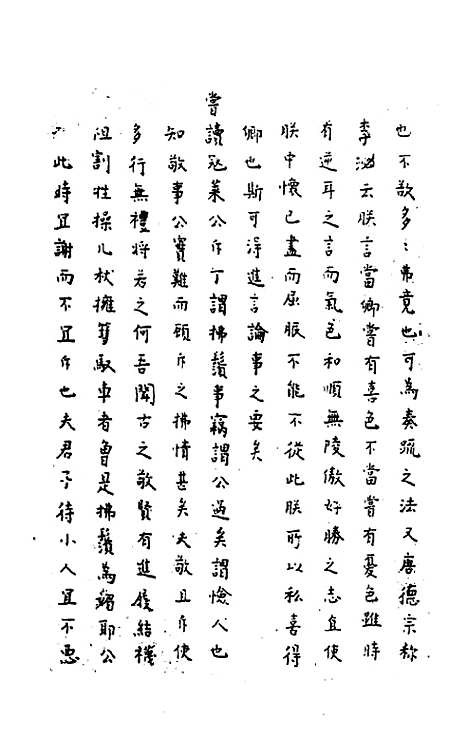 也不敢多多弗竟也可為奏疏之法又唐德宗称
李泌云朕言當卿嘗有喜色不當嘗有憂色雖時
有逆耳之言而氣色和順無陵傲好勝之志直使
朕中懷已盡而屈服不能不從此朕所以私喜得
卿也斯可淂進言論事之要矣
嘗讀冦萊公斥丁謂拂鬚事竊謂公過矣謂憸人也
知敬事公賓難而顧斥之拂情甚矣夫敬且斥使
多行無禮将若之何吾聞古之敬賢有進履結襪
俎割牲操几杖擁篲馭車者魯是拂鬚為謟耶公
此時宜謝而不宜斥也夫君子待小人宜不悪